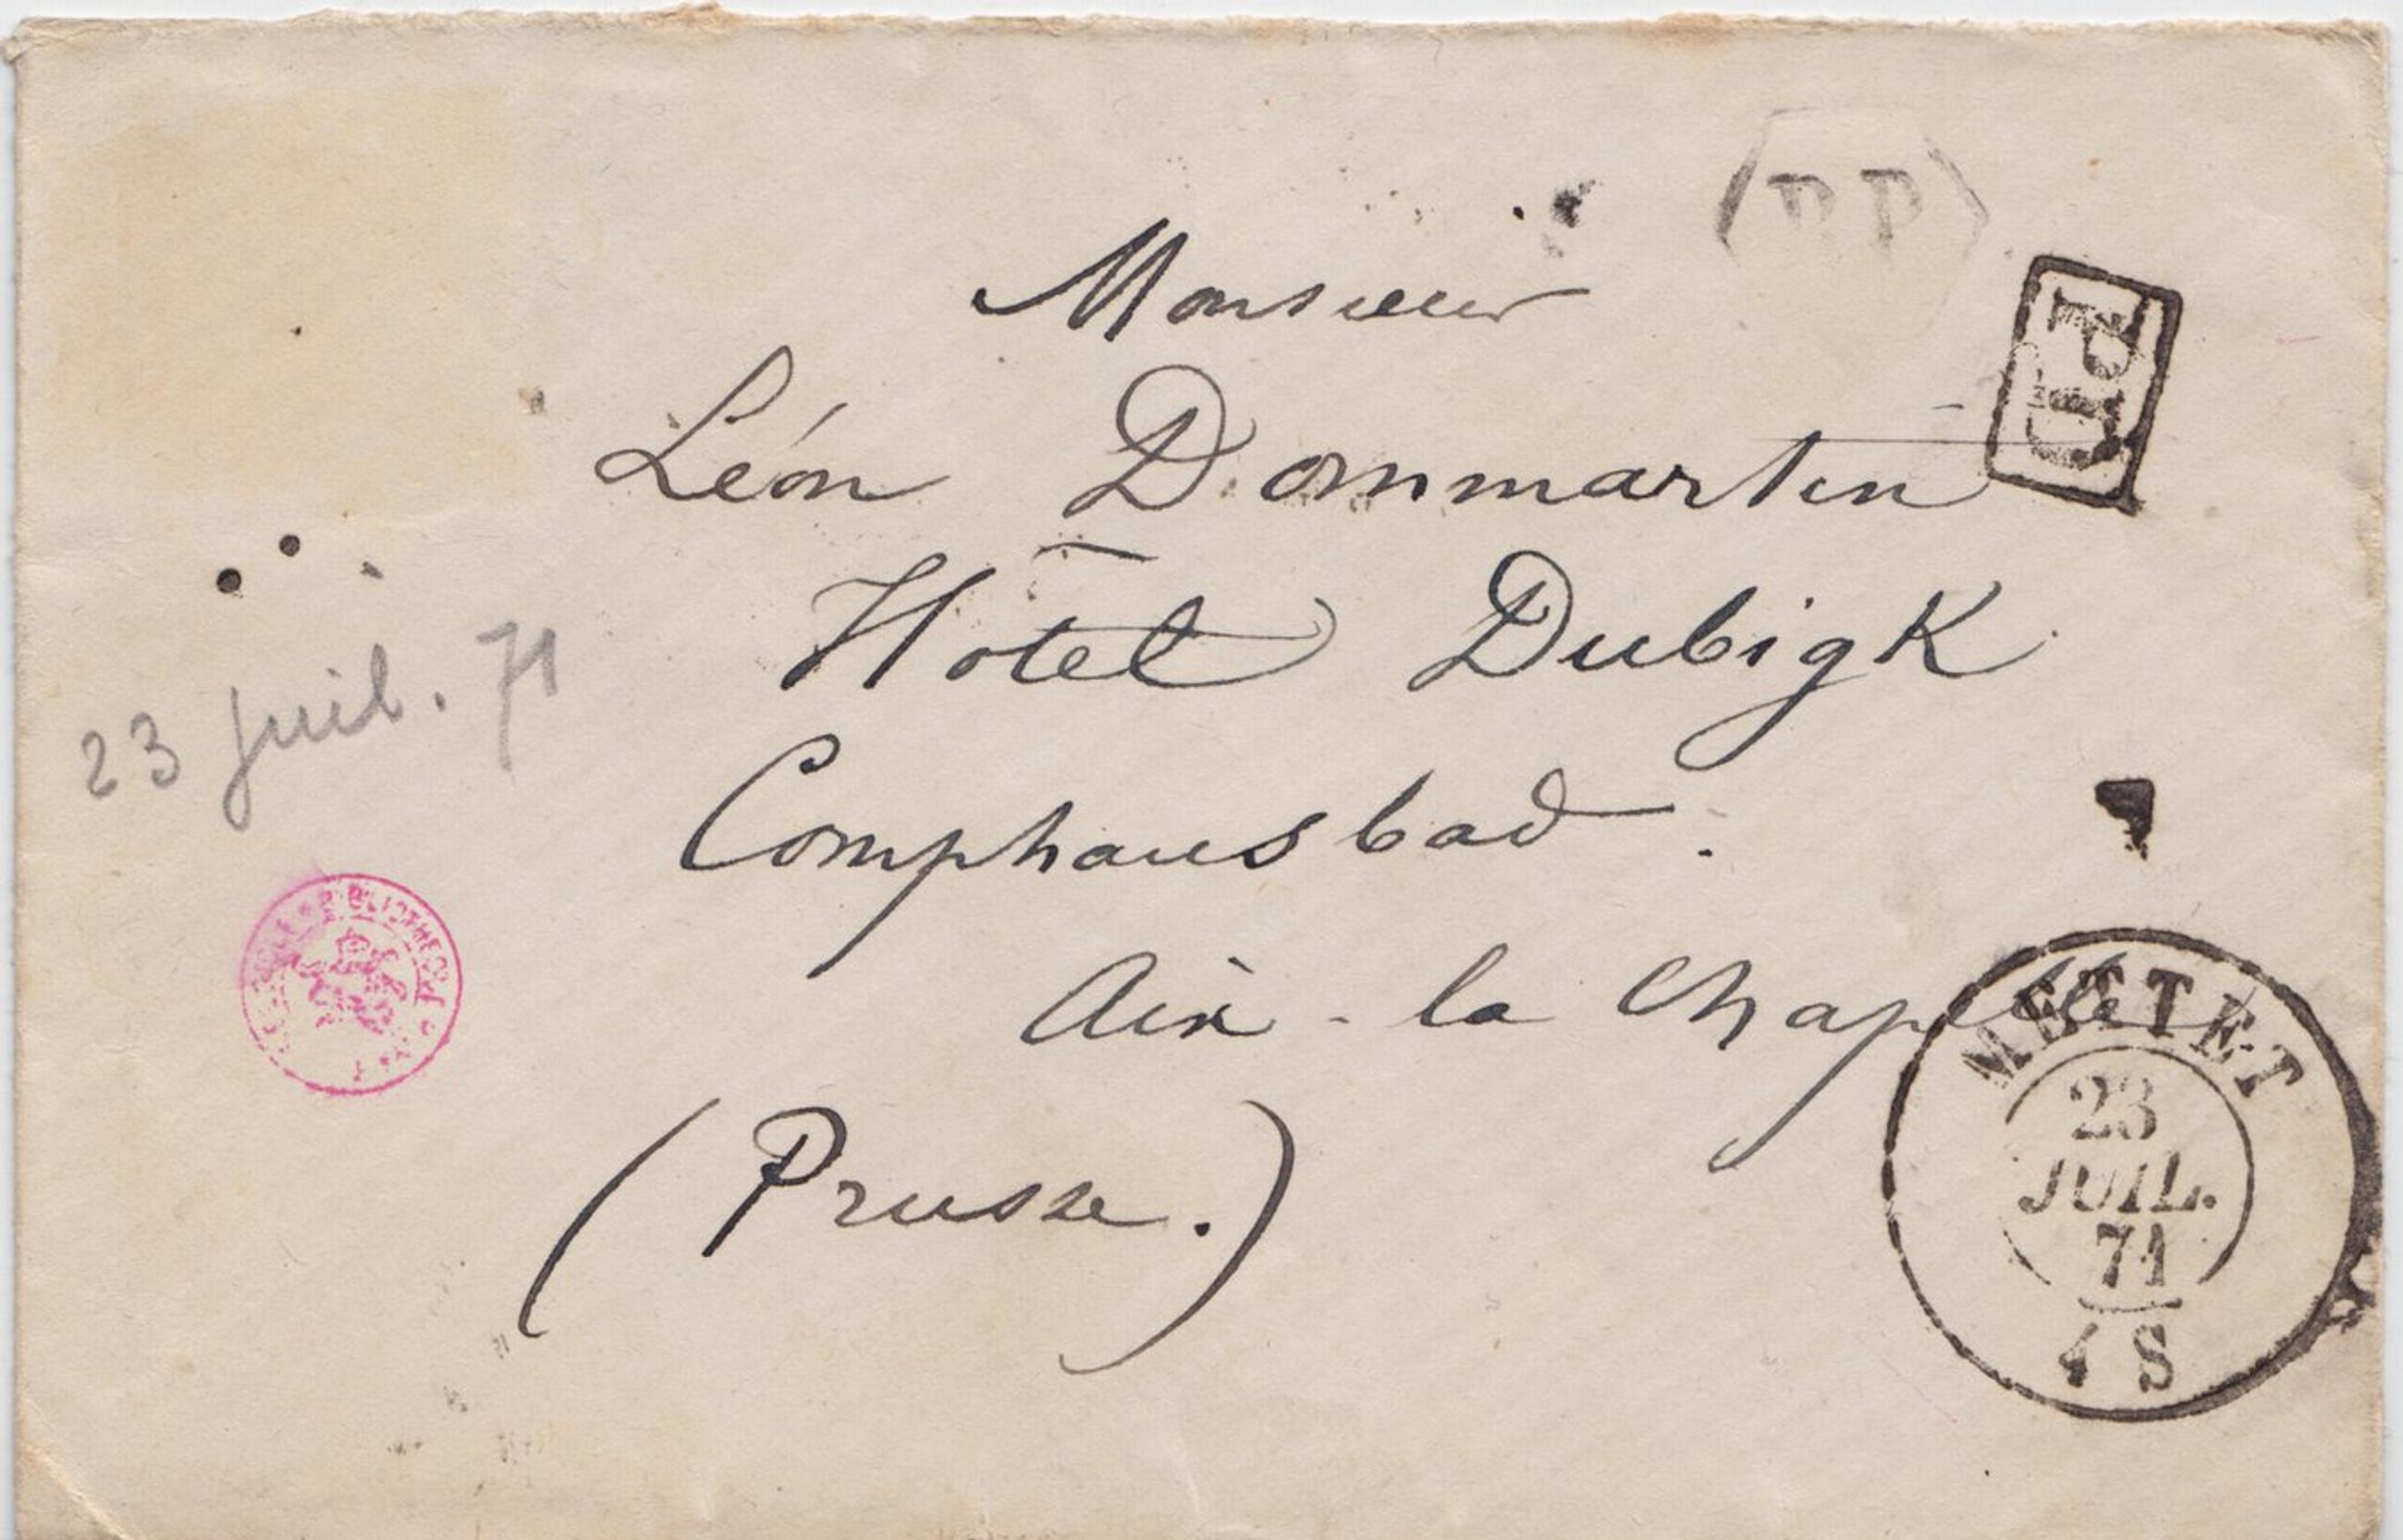 PD
Monsieur
PD
Léon Dommartin
Hôtel Dubigk
23 juil. 71
Comphausbad.
Aix-la Chapelle
(Prusse.)
METTET
23
JUIL.
71
4 S